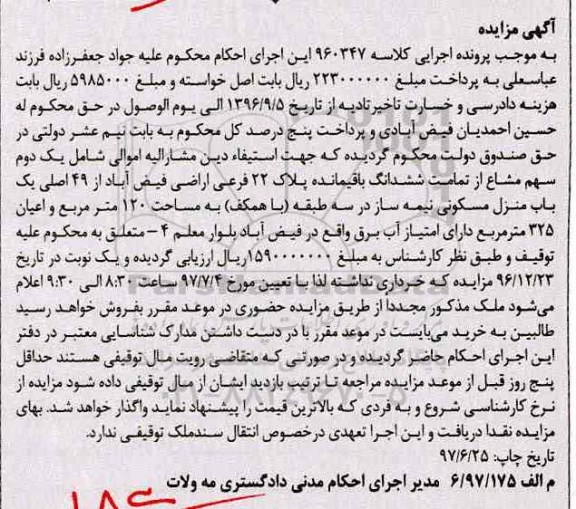 آگهی مزایده
به موجب پرونده اجرایی کلاسه ۹۶۰۳۴۷ این اجرای احکام محکوم علیه جواد جعفرزاده فرزند
عباسعلی به پرداخت مبلغ ۲۲۳۰۰۰۰۰۰ ریال بابت اصل خواسته و مبلغ ۵۹۸۵۰۰۰ ریال بابت
هزینه دادرسی و خسارت تاخیرتادیه از تاریخ ۱۳۹۶/۹/۵ الی یوم الوصول در حق محکوم له
حسین احمدیان فیض آبادی و پرداخت پنج درصد کل محکوم به بابت نیم عشر دولتی در
حق صندوق دولت محکوم گردیده که جهت استیفاء دین مشارالیه اموالی شامل یک دوم
سهم مشاع از تمامت ششدانگ باقیمانده پلاک ۲۲ فرعی اراضی فیض آباد از ۴۹ اصلی یک
باب منزل مسکونی نیمه ساز در سه طبقه (با همکف) به مساحت ۱۲۰ متر مربع و اعیان
۳۲۵ مترمربع دارای امتیاز آب برق واقع در فیض آباد بلوار معلم ۴ – متعلق به محکوم علیه
توقیف و طبق نظر کارشناس به مبلغ ۱۵۹۰۰۰۰۰۰۰ریال ارزیابی گردیده و یک نوبت در تاریخ
۹۶/۱۲/۲۳ مزایده که خریداری نداشته لذا با تعیین مورخ ۹۷/۷/۴ ساعت ۸:۳۰ الی ۹:۳۰ اعلام
می‌شود ملک مذکور مجددا از طریق مزایده حضوری در موعد مقرر بفروش خواهد رسید
طالبین به خرید می‌بایست در موعد مقرر با در دست داشتن مدارک شناسایی معتبر در دفتر
این اجرای احکام حاضر گردیده و در صورتی که متقاضی رویت مال توقیفی هستند حداقل
پنج روز قبل از موعد مزایده مراجعه تا ترتیب بازدید ایشان از مال توقیفی داده شود مزایده از
نرخ کارشناسی شروع و به فردی که بالاترین قیمت را پیشنهاد نماید واگذار خواهد شد. بهای
مزایده نقدا دریافت و این اجرا تعهدی درخصوص انتقال سندملک توقیفی ندارد.
تاریخ چاپ: ۹۷/۶/۲۵
م الف ۶/۹۷/۱۷۵ مدیر اجرای احکام مدنی دادگستری مه ولات